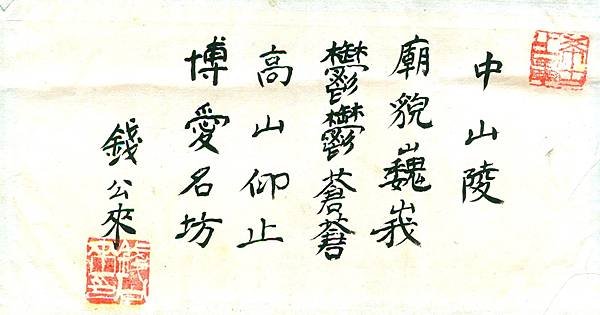 中山陵
廟貌巍峩
鬱鬱蒼蒼
高山仰止
博愛名坊
錢公來